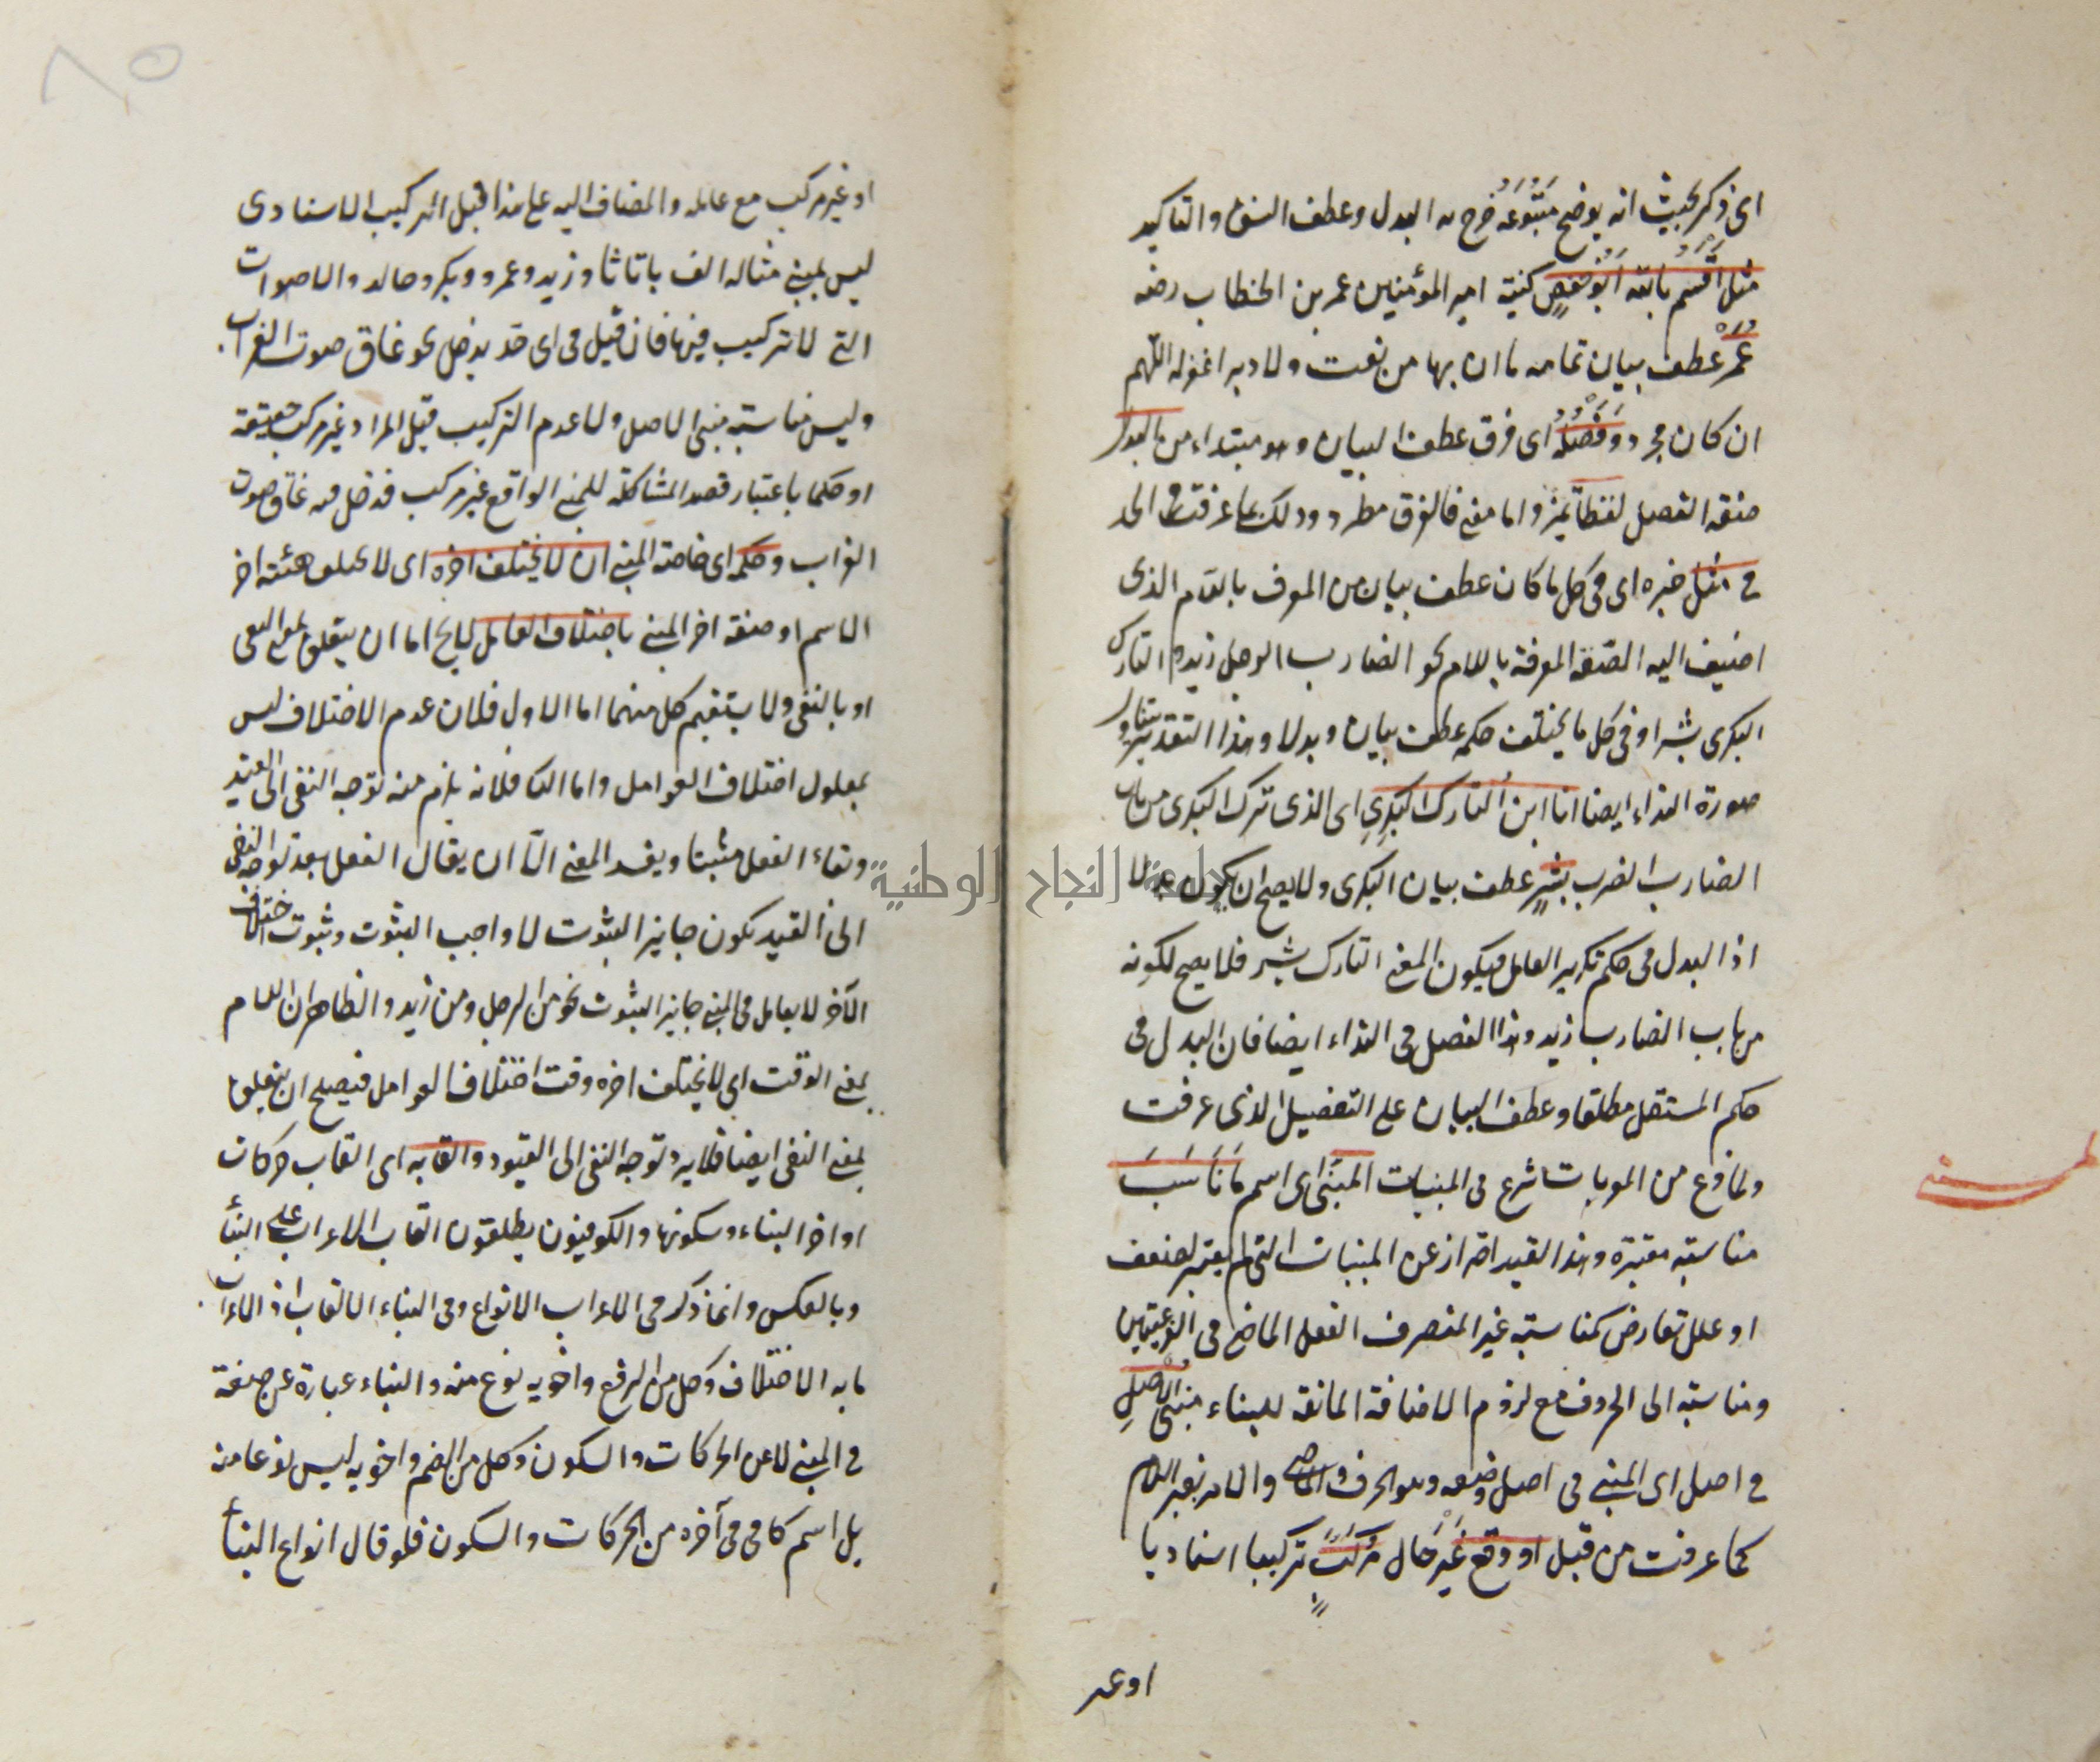 اى ذكر بحيث انه يوضح مَتبُوعَه خرج به البدل وعطف النسق والتاكيد
مثل اَقْسَمَ بالله اَبُو حَفصٍ كنية امير المؤمنين عمر بن الخطاب رضه
عُمَرْ عطف بيان تمامه ما ان بها من نقب ولا دبر اغفر له اللّهم
ان كان فجر وَفَصْلُهُ اى فرق عطف البيان وهو مبتداء من البدل
صفة الفصل لفظا تميز واما معنى فالفرق مطرد وذلك بما عرفت من الحد
فى مثل خبره اى فى كل ما كان عطف بيان من المعرف باللام الذى
اضيف اليه الصفة المعرفة باللام نحو الضارب الرجل زيد والتارك
البكرى بشر او فى كل ما يختلف حكمه عطف بيان وبدلا وهذا التقدير يتناول
صورة النداء ايضا انا ابنُ التارك البكرِىِ اى الذى ترك البكرى من باب
الضارب الضرب بشرٍ عطف بيان البكرى ولا يصح ان يكون بدلا
اذ البدل فى حكم تكرير العامل فيكون المعنى التارك بشر فلا يصح لكونه
من باب الضارب زيد وهذا الفصل فى النداء ايضا فان البدل فى
حكم المستقل مطلقا وعطف البيان على التفصيل الذى عرفت
ولما فرغ من المعربات شرع فى المبنيات المبنى اى اسم مَا نَاسَبَ
مناسبة معتبرة وهذا القيد احتراز عن المبنيات التى لم يعتبر لضعف
او علل تعارض كمناسبة غير المنصرف الفعل الماضى فى الفرعيتين
ومناسبة اى الحروف مع لزوم الاضافة المانعة للبناء مبنى الاصلِ
فى اصل اى المبنى فى اصل وضعه وهو الحرف والماضى والامر بغير اللام
كما عرفت من قبل او وقع غَيرَ حال مُرَكَّبٍ تركيبا اسناديا
او غير
او غير مركب مع عامله والمضاف اليه على هذا قبل التركيب الاسنادى
ليس بمبنى مثاله الف با تا ثا وزيد وعمرو وبكر وخالد والاصوات
التى لا تركيب فيها فان قيل فى اى حد يدخل نحو غاق صوت الغراب
وليس مناسبة مبنى الاصل ولا عدم التركيب قيل المراد غير مركب حقيقة
او حكما باعتبار قصد المشاكلة للمبنى الواقع غير مركب فدخل فيه غاق صوت
الغراب وحكمه اى خاصة المبنى ان لا يختلف اخره اى لا يختلف هيئته اخر
الاسم او صفة اخر المبنى باختلاف العامل اما ان يتعلق
او بالنفى ولا يستقيم كل منهما اما الاول فلان عدم الاختلاف ليس
بمعلول اختلاف العوامل واما الثا فلانه يلزم منه توجه النفى الى القيد
وبقاء الفعل مثبتا ويفسد المعنى الّا ان يقال الفعل بعد توجه النفى
الى القيد يكون جايز الثبوت لا واجب الثبوت وثبوت اختلاف
الآخر لا بعامل فى المبنى جايز الثبوت نحو من الرجل ومن زيد والظاهر ان اللام
بمعنى الوقت اى لا يختلف اخره وقت اختلاف العوامل فيصح ان يتعلق
بمعنى النفى ايضا فلا يرد توجه النفى الى القيود والقابه اى القاب حركات
اواخر البناء وسكونها والكوفيون يطلقون القاب الاعراب على البناء
وبالعكس وانما ذكر فى الاعراب الانواع وفى البناء الالقاب اذ الاعراب
ما به الاختلاف وكل من الرفع واخويه نوع منه والبناء عبارة عن صفة
فى المبنى لا عن الحركات والسكون وكل من الضم واخويه ليس نوعا منه
بل اسم كا فى فى آخره من الحركات والسكون فلو قال انواع البناء
٨٥
جامعة النجاح الوطنية